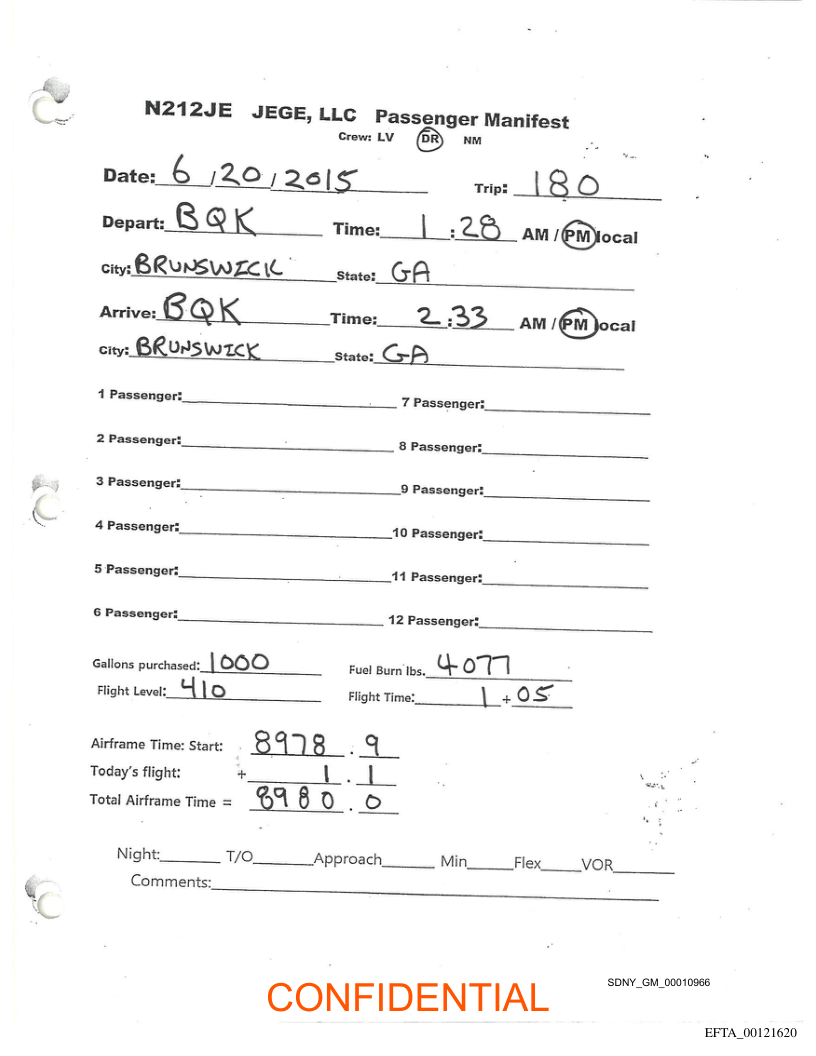 N212JE JEGE, LLC Passenger Manifest
Crew: LV DR NM
Date: 6 / 20 / 2015 Trip: 180
Depart: BQK Time: 1 : 28 AM / PM local
City: BRUNSWICK State: GA
Arrive: BQK Time: 2 : 33 AM / PM local
City: BRUNSWICK State: GA
1 Passenger: 7 Passenger:
2 Passenger: 8 Passenger:
3 Passenger: 9 Passenger:
4 Passenger: 10 Passenger:
5 Passenger: 11 Passenger:
6 Passenger: 12 Passenger:
Gallons purchased: 1000 Fuel Burn lbs. 4077
Flight Level: 410 Flight Time: 1 + 05
Airframe Time: Start: 8978 . 9
Today's flight: + 1 . 1
Total Airframe Time = 8980 . 0
Night: T/O Approach Min Flex VOR
Comments:
SDNY_GM_00010966
CONFIDENTIAL
EFTA_00121620